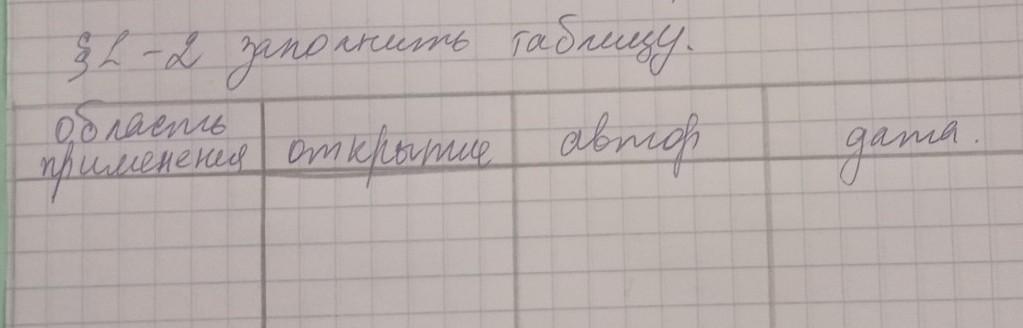 §1-2 заполнить таблицу.
область применения открытие автор дата.